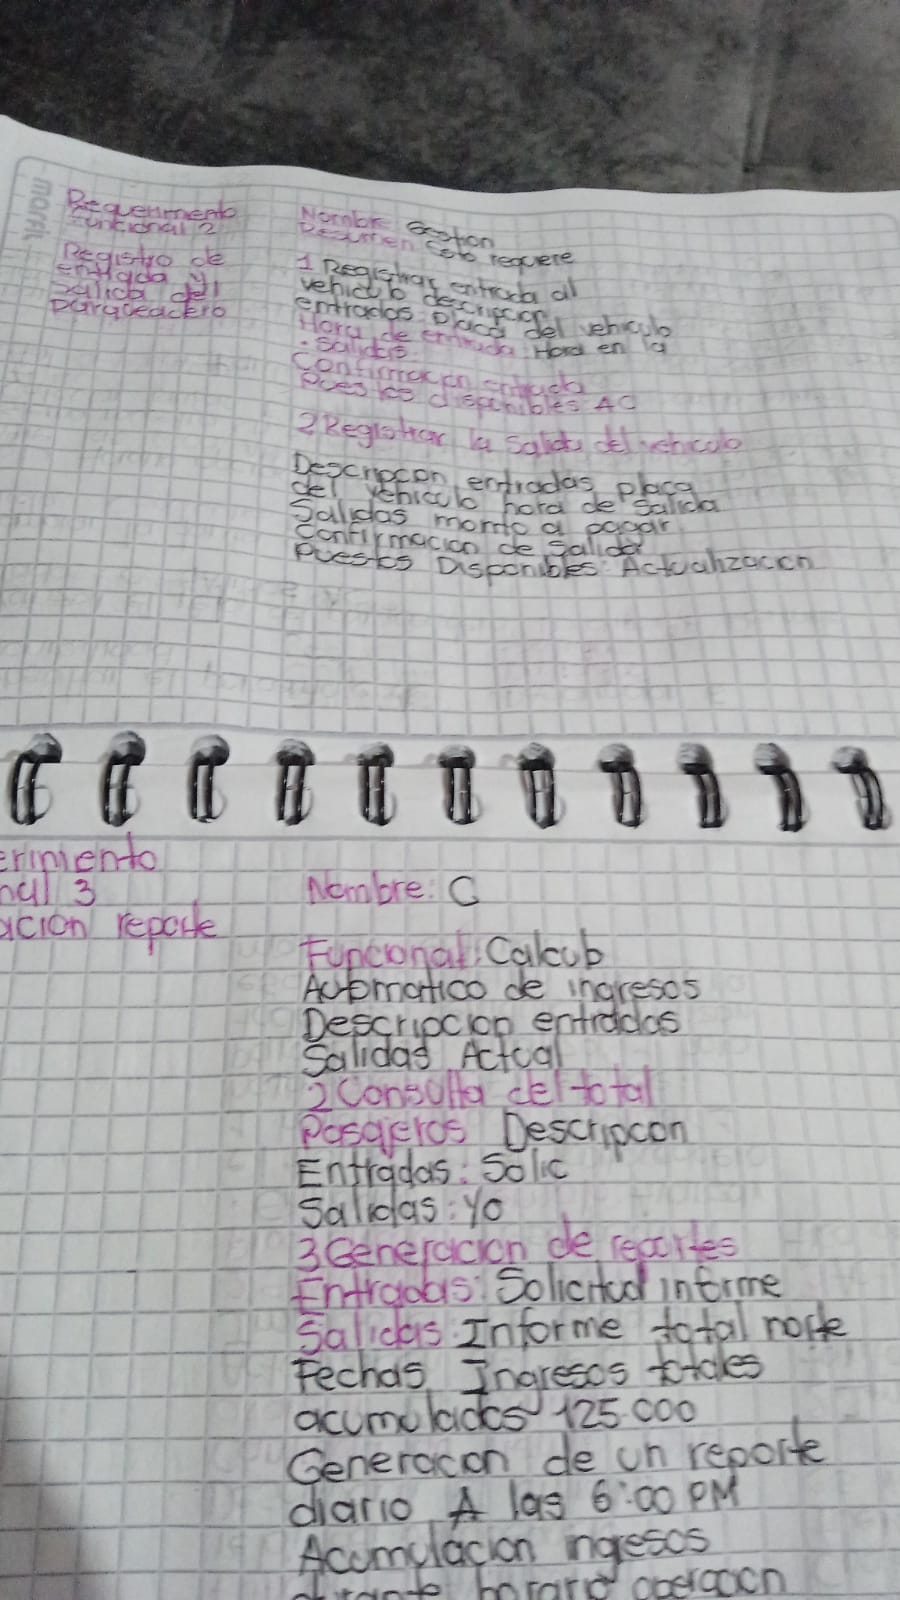 Norma
Requerimento
funcional 2
Registro de
entrada y
salida del
parqueadero
Nombre Gestion
Resumen esto requiere
1 Registrar entrada al
vehiculo descripcion
entradas placa del vehiculo
Hora de entrada: Hora en la
• Salidas
Confirmacion entrada
Puestos disponibles AC
2 Registrar la salida del vehiculo
Descripcon entradas placa
del vehiculo hora de salida
Salidas monto a pagar
Confirmacion de salida
Puestos Disponibles: Actualizacion
erimiento
nal 3
acion reporte
Nombre: C
Funcional: Calculo
Automatico de ingresos
Descripcion entradas
Salidas Actual
2 Consulta del total
Pasajeros Descripcon
Entradas: Solic
Salidas: Yo
3 Generacion de reportes
Entradas: Solicitud informe
Salidas: Informe total
Fechas, Ingresos totales
acumulados 125.000
Generacon de un reporte
diario A las 6:00 PM
Acumulacion ingresos
durante horario operacion